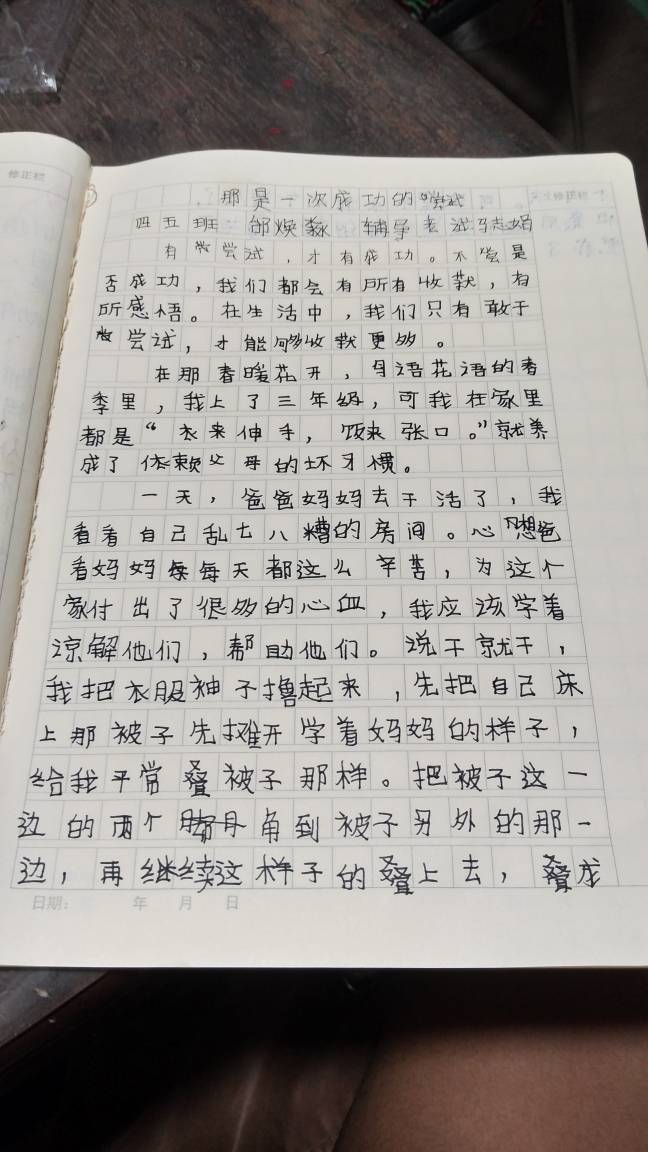 修正栏
那是一次成功的尝试
四五班 邰焕淼 辅导老 马志娟
有尝试，才有成功。不尝是
否成功，我们都会有所有收获，有
所感悟。在生活中，我们只有敢于
尝试，才能够收获更多。
在那春暖花开，鸟语花语的春
季里，我上了三年级，可我在家里
都是“衣来伸手，饭来张口。”就养
成了依赖父母的坏习惯。
一天，爸爸妈妈去干活了，我
看看自己乱七八糟的房间。心想爸
爸妈妈每每天都这么辛苦，为这个
家付出了很多的心血，我应该学着
谅解他们，帮助他们。说干就干，
我把衣服袖子撸起来，先把自己床
上那被子先摊开学着妈妈的样子，
给我平常叠被子那样。把被子这一
边的两个角到被子另外的那一
边，再继续这样子的叠上去，叠成
日期： 年 月 日